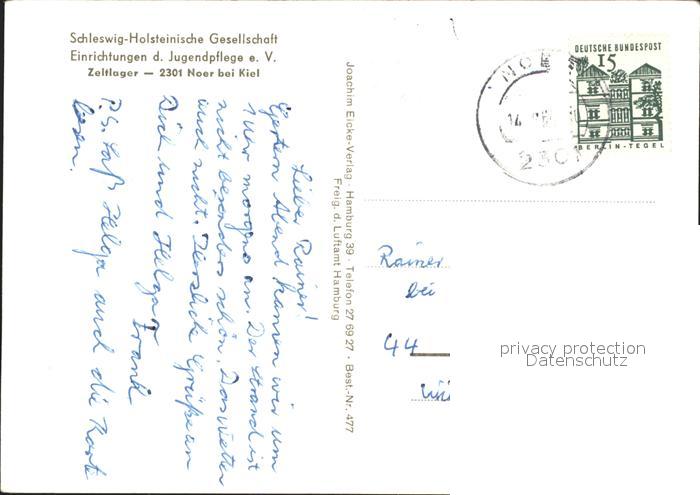 Schleswig-Holsteinische Gesellschaft
Einrichtungen d. Jugendpflege e. V.
Zeltlager — 2301 Noer bei Kiel
Lieber Rainer!
Gestern Abend kamen wir um
1 Uhr morgens an. Der Strand ist
nicht besonders schön. Das Wetter
auch nicht. Herzliche Grüße an
Dich und Helga
Frank
P.S. Laß Helga auch die Karte
lesen.
Joachim Eiske-Verlag · Hamburg 39 · Telefon 27 69 27 · Best.-Nr. 477
Freig. d. Luftamt Hamburg
DEUTSCHE BUNDESPOST
15
BERLIN-TEGEL
NO
14.
2301
Rainer
bei
44
privacy protection
Datenschutz